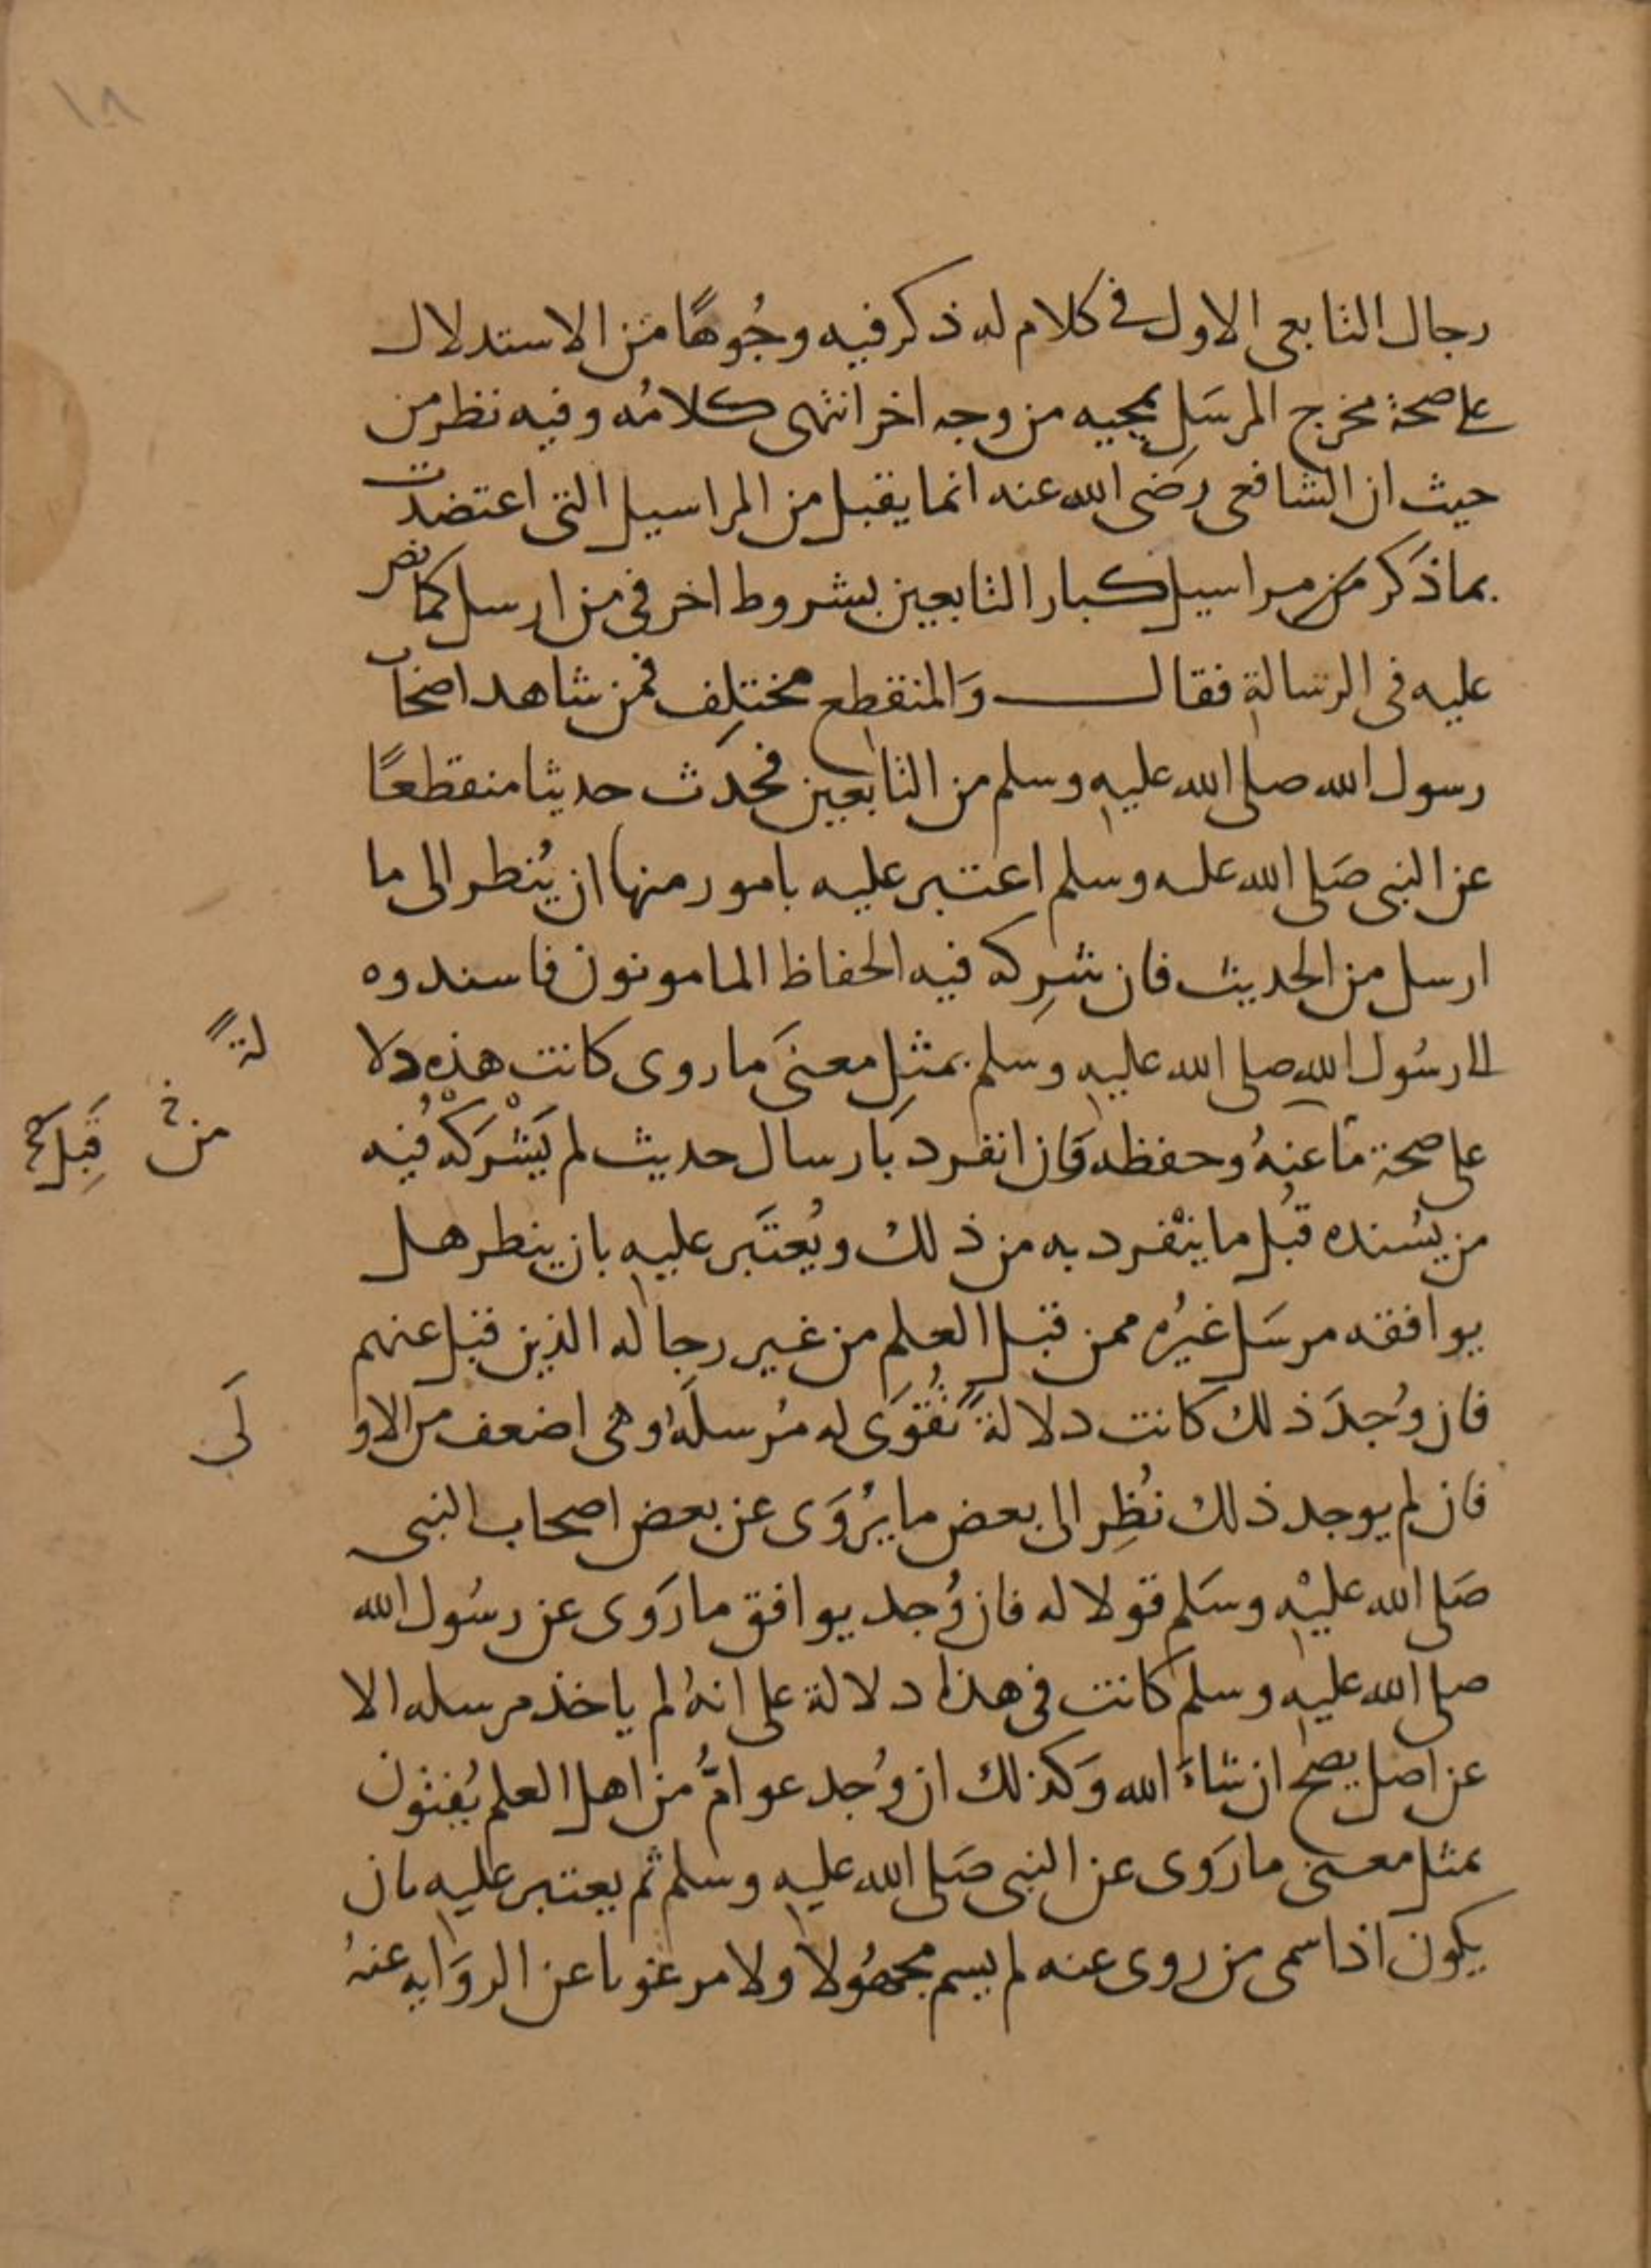 ١٨
رجال التابعى الاول فى كلام له ذكر فيه وجُوهًا من الاستدلال
على صحة مخرج المرسَل بمجيه من وجه اخر انتهى كلامُه وفيه نظر من
حيث ان الشافعى رضى الله عنه انما يقبل من المراسيل التى اعتضدت
بما ذكر من مراسيل كبار التابعين بشروط اخر فى من ارسل كما نص
عليه فى الرسالة فقال وَالمنقطع مختلِف فمن شاهد اصحاب
رسول الله صلى الله عليه وسلم من التابعين فحدَث حديثا منقطعًا
عن النبى صَلى الله عليه وسلم اعتبر عليه بامور منها ان يُنظر الى ما
ارسل من الحديث فان شرِكه فيه الحفاظ المامونون فاسندوه
الى رسُول الله صلى الله عليه وسلم بمثل معنَى ما روى كانت هذه دلا
لةً
على صحة ما عنهُ وحفظه وَان انفرد بارسال حديث لم يَشْركْه فيه
من قَبِلَ
من يسُنده قبُل ما ينْفرد به من ذلك ويُعتَبر عليه بان ينظر هل
يوافقه مرسَل غيرُه ممن قبل العلم من غير رجاله الذين قبل عنهم
فان وُجدَ ذلك كانت دلالةً تُقوَى له مُرسلَهُ وهى اضعف من الاو
لَى
فان لم يوجد ذلك نُظِر الى بعض ما يرُوَى عن بعض اصحاب النبى
صَلى الله عليْه وسَلم قولا له فان وُجد يوافق ما رَوى عن رسُول الله
صلى الله عليه وسلم كانت فى هذا دلالة على انهُ لم ياخذ مرسله الا
عن اصل يصح ان شاءَ الله وَكذلك ان وُجد عوامُّ من اهل العلم يُفتون
بمثل معنى ما رَوى عن النبى صَلى الله عليه وسلم ثم يعتبر عليه بان
يكون اذا سمى من روى عنه لم يسم مجهُولا ولا مرغوبا عن الروَايه عنهُ